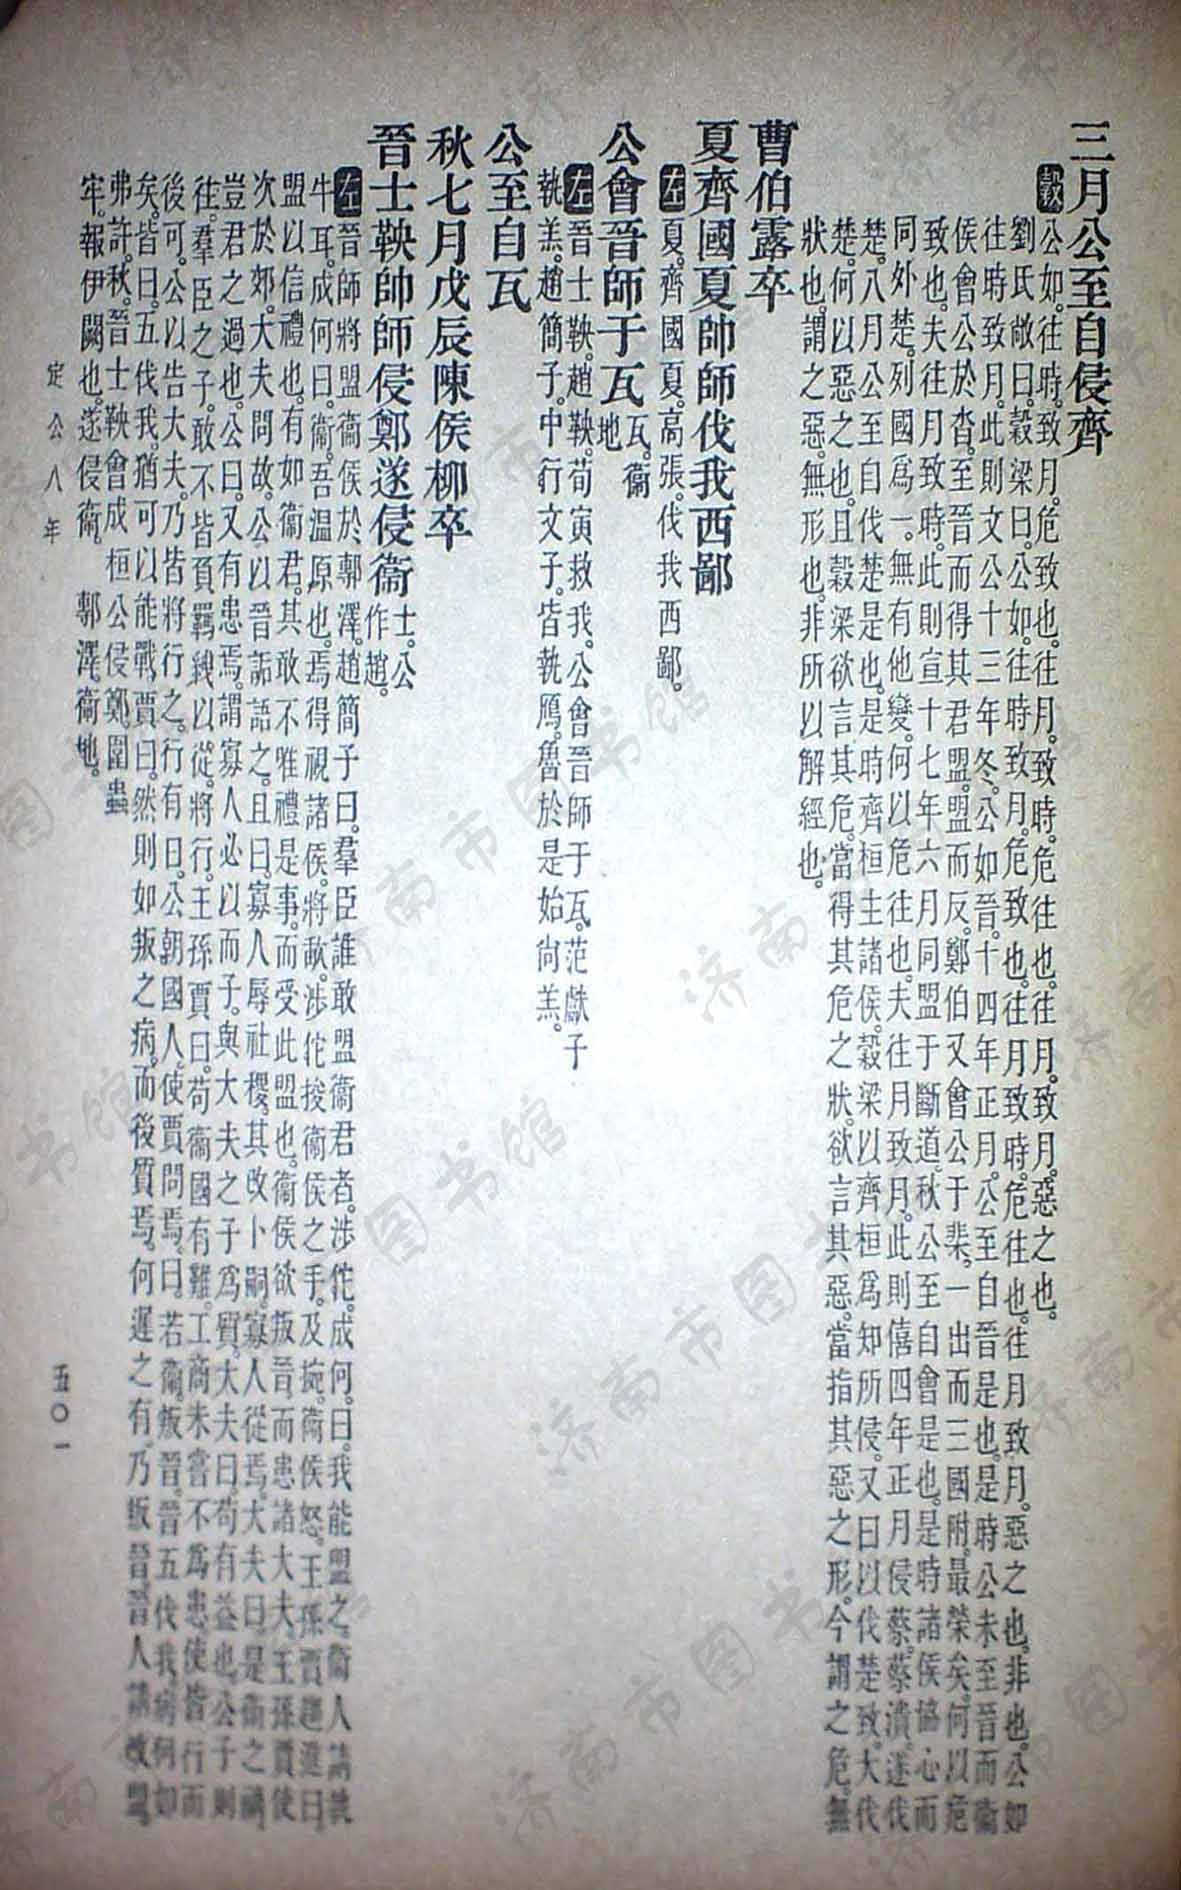 三月公至自侵齊
穀公如。往時。致月。危致也。往月。致時。危往也。往月。致月。惡之也。
劉氏敞曰。穀梁曰。公如。往時致月。危致也。往月致時。危往也。往月致月。惡之也。非也。公如
往時致月。此則文公十三年冬。公如晉。十四年正月。公至自晉是也。是時公未至晉而衞
侯會公於沓。至晉而得其君盟。盟而反。鄭伯又會公于棐。一出而三國附。最榮矣。何以危
致也。夫往月致時。此則宣十七年六月同盟于斷道。秋公至自會是也。是時諸侯協心而
同外楚。列國爲一。無有他變。何以危往也。夫往月致月。此則僖四年正月侵蔡。蔡潰。遂伐
楚。八月公至自伐楚是也。是時齊桓主諸侯。穀梁以齊桓爲知所侵。又曰以伐楚致。大伐
楚。何以惡之也。且穀梁欲言其危。當得其危之狀。欲言其惡。當指其惡之形。今謂之危。無
狀也。謂之惡。無形也。非所以解經也。
曹伯露卒
夏齊國夏帥師伐我西鄙
左夏。齊國夏。高張。伐我西鄙。
公會晉師于瓦瓦。衞地
左晉士鞅。趙鞅。荀寅救我。公會晉師于瓦。范獻子
執羔。趙簡子。中行文子。皆執鴈。魯於是始尚羔。
公至自瓦
秋七月戊辰陳侯柳卒
晉士鞅帥師侵鄭遂侵衞士。公作趙。
左晉師將盟衞侯於鄟澤。趙簡子曰。羣臣誰敢盟衞君者。涉佗。成何。曰。我能盟之。衞人請執
牛耳。成何曰。衞。吾溫原也。焉得視諸侯。將歃。涉佗捘衞侯之手。及捥。衞侯怒。王孫賈趨進曰。
盟以信禮也。有如衞君。其敢不唯禮是事。而受此盟也。衞侯欲叛晉。而患諸大夫。王孫賈使
次於郊。大夫問故。公以晉詬語之。且曰。寡人辱社稷。其改卜嗣。寡人從焉。大夫曰。是衞之禍。
豈君之過也。公曰。又有患焉。謂寡人必以而子。與大夫之子爲質。大夫曰。苟有益也。公子則
往。羣臣之子。敢不皆負羈絏以從。將行。王孫賈曰。苟衞國有難。工商未嘗不爲患。使皆行而
後可。公以告大夫。乃皆將行之。行有日。公朝國人。使賈問焉。曰。若衞叛晉。晉五伐我。病何如
矣。皆曰。五伐我。猶可以能戰。賈曰。然則如叛之。病而後質焉。何遲之有。乃叛晉。晉人請改盟。
弗許。秋。晉士鞅會成桓公侵鄭。圍蟲
牢。報伊闕也。遂侵衞。鄟澤。衞地。
定公八年
五〇一